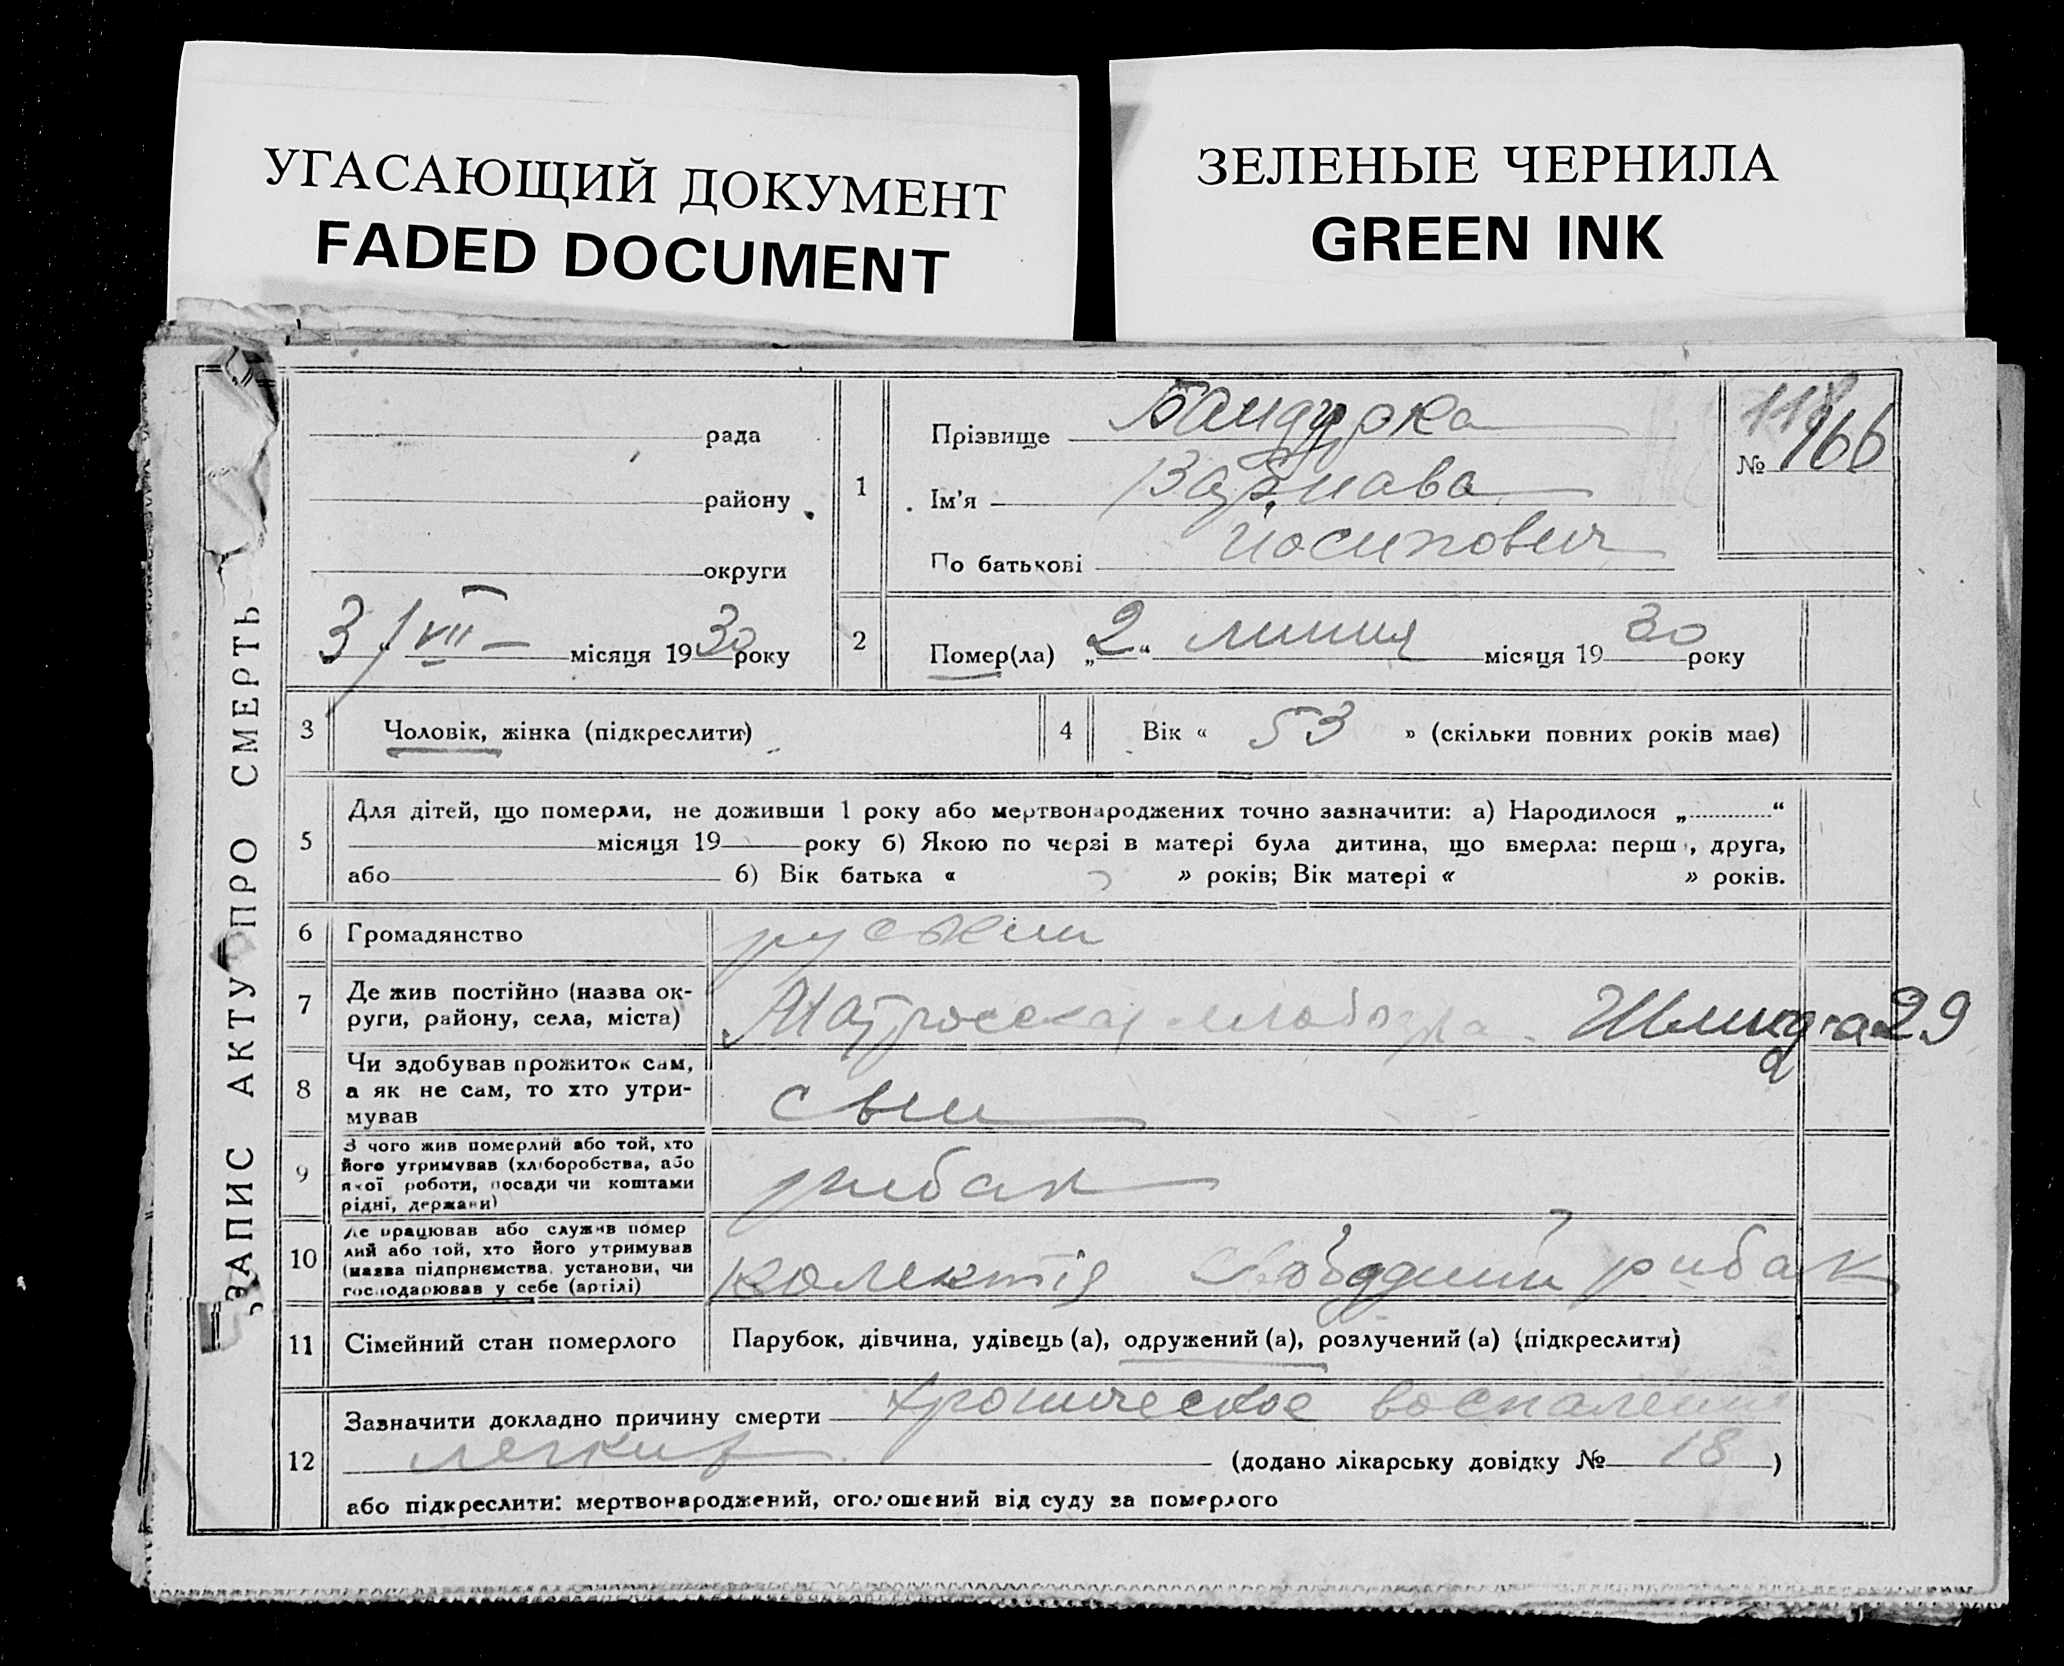 УГАСАЮЩИЙ ДОКУМЕНТ
FADED DOCUMENT
ЗЕЛЕНЫЕ ЧЕРНИЛА
GREEN INK
ЗАПИС АКТУ ПРО СМЕРТЬ
рада
району
округи
3 / VII — місяця 1930 року
1
Прізвище Бандурка
Ім'я Варнава
По батькові Йосипович
№ 166
2
Помер(ла) „2“ липня місяця 1930 року
3 Чоловік, жінка (підкреслити)
4 Вік « 53 » (скільки повних років має)
5
Для дітей, що померли, не доживши 1 року або мертвонароджених точно зазначити: а) Народилося „ “
місяця 19 року б) Якою по черзі в матері була дитина, що вмерла: перша, друга,
або б) Вік батька « » років; Вік матері « » років.
6 Громадянство руський
7 Де жив постійно (назва ок-
руги, району, села, міста)
Матросская слобода Шмидта 29
8 Чи здобував прожиток сам,
а як не сам, то хто утри-
мував
сын
9 З чого жив померлий або той, хто
його утримував (хліборобства, або
якої роботи, посади чи коштами
рідні, держави)
рибак
10 Де працював або служив помер
лий або той, хто його утримував
(назва підприємства, установи, чи
господарював у себе (артілі)
колектів рибак
11 Сімейний стан померлого Парубок, дівчина, удівець (а), одружений (а), розлучений (а) (підкреслити)
12
Зазначити докладно причину смерти хроническое воспаление
легких (додано лікарську довідку № 18)
або підкреслити: мертвонароджений, оголошений від суду за померлого